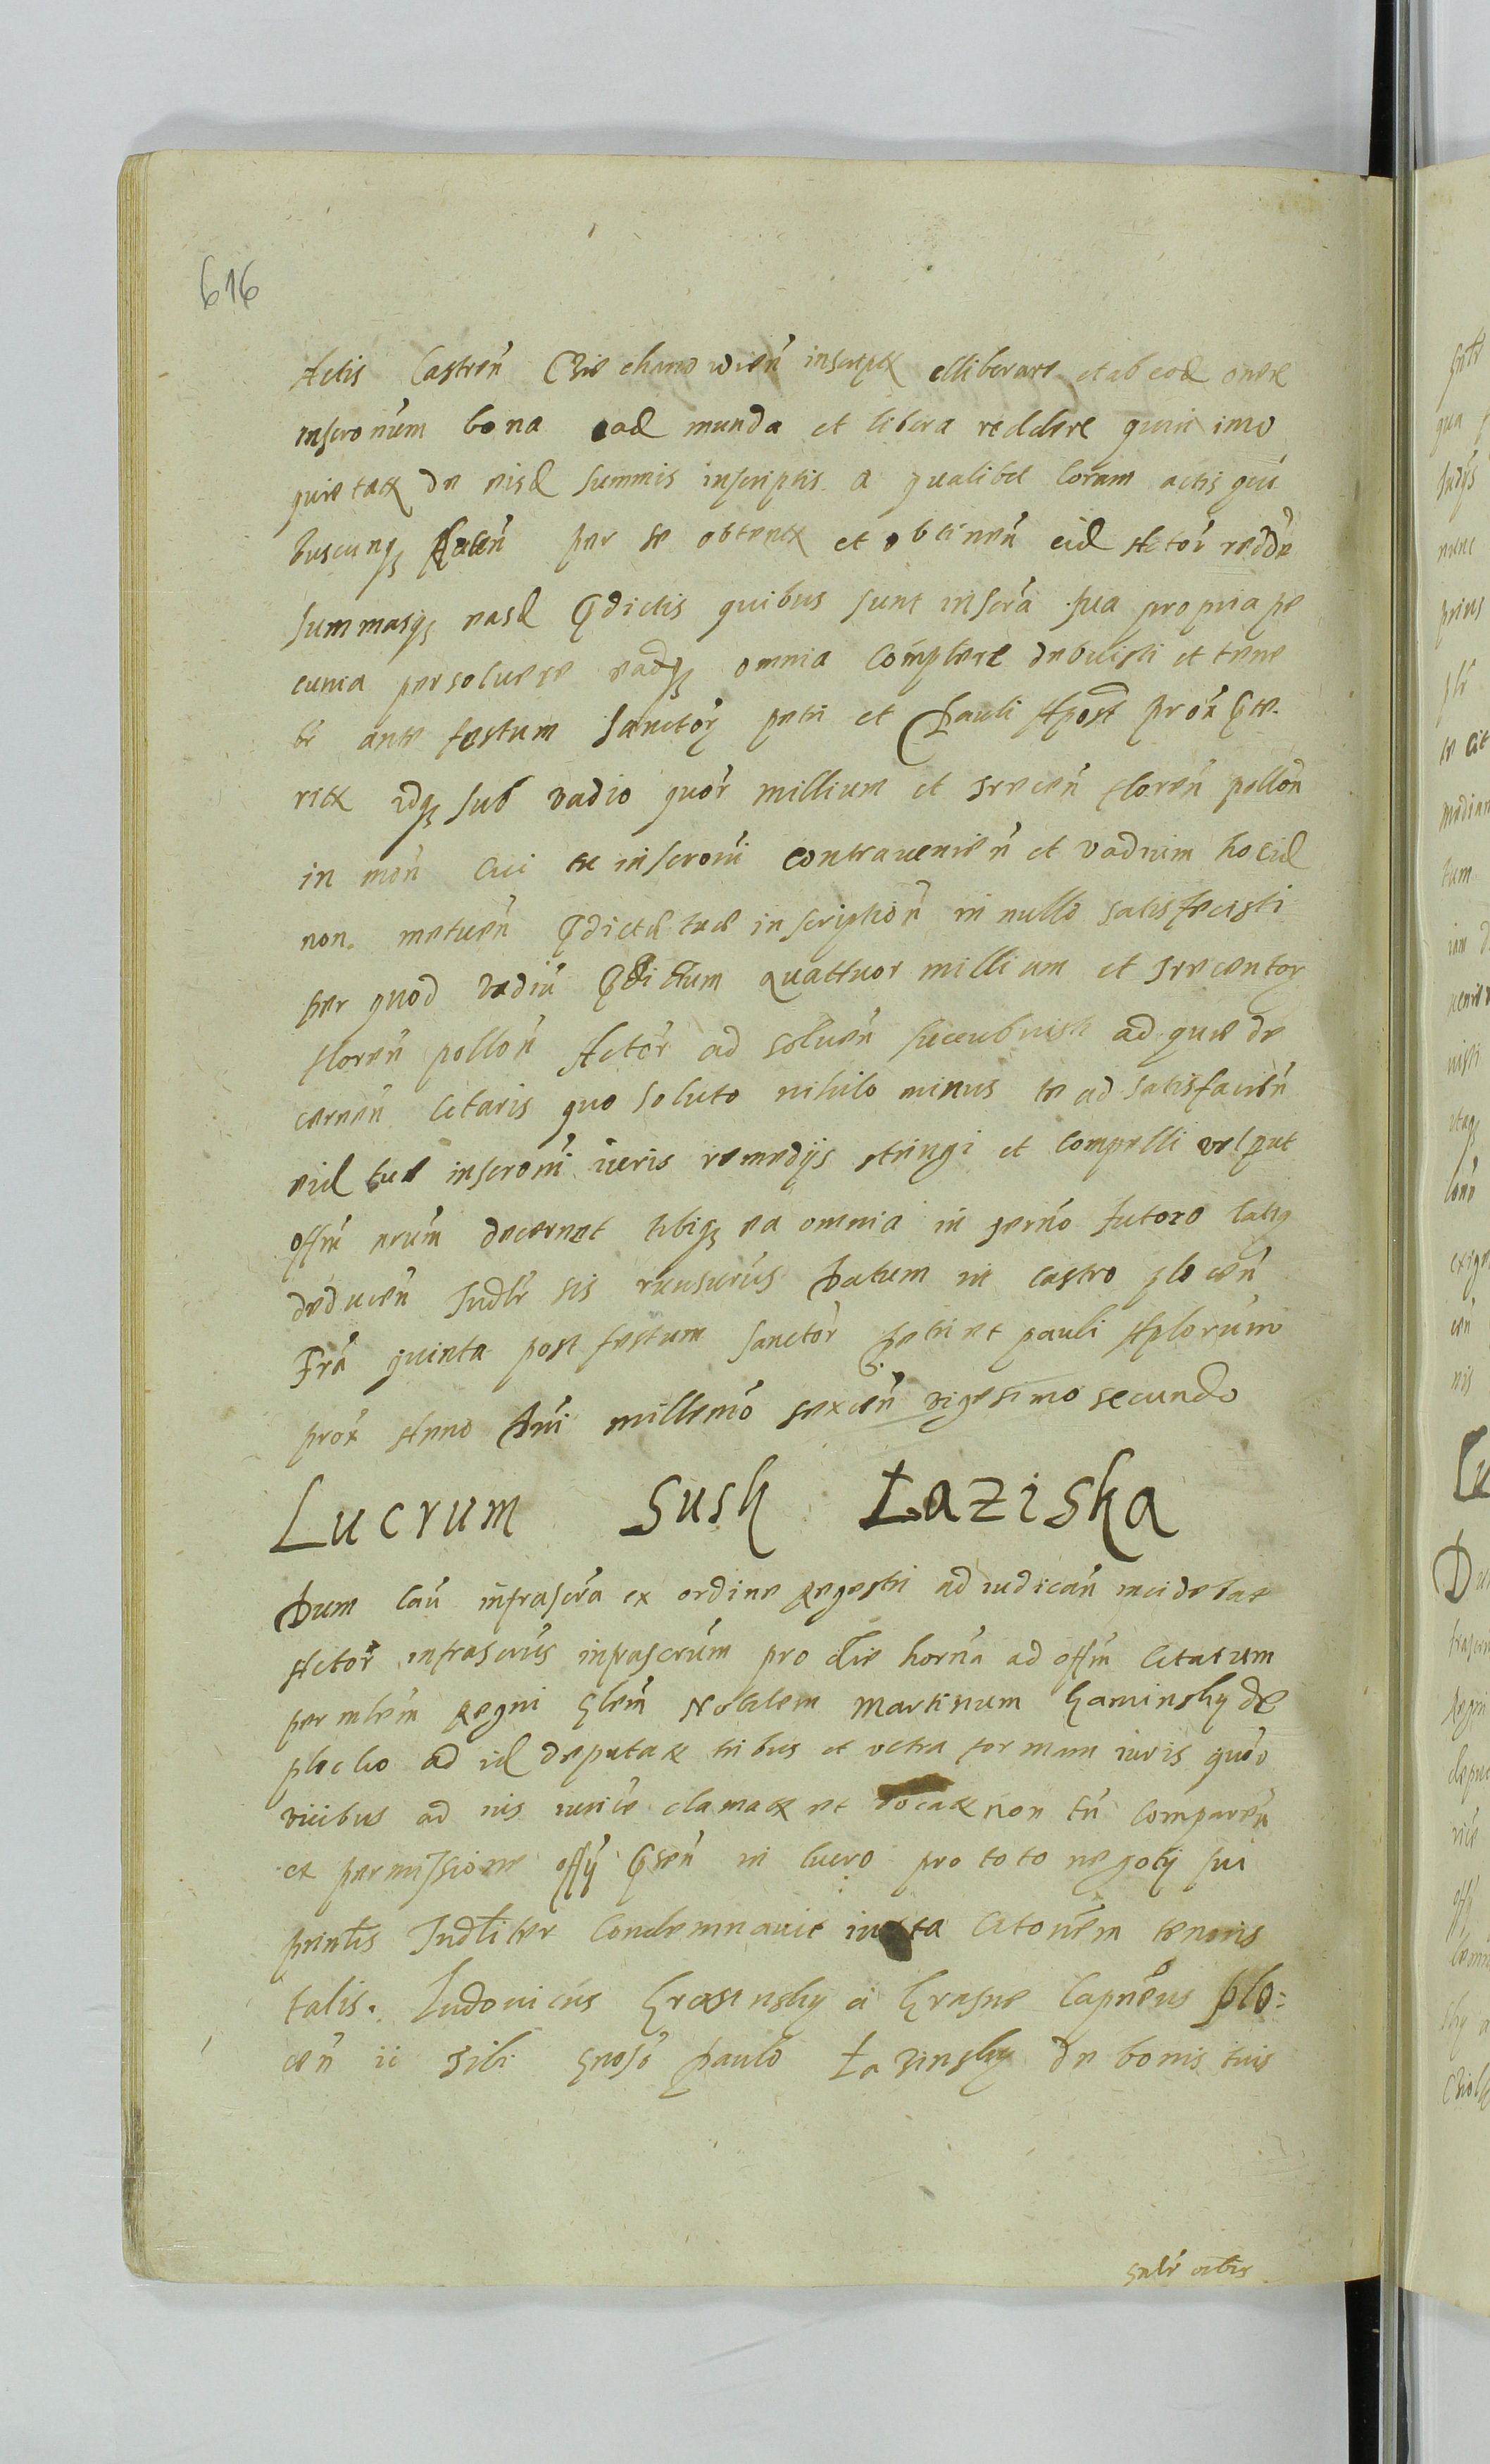 616
Actis Castren Ciechanowien inscript elliberare et ab eod onere
inscronum bona ead munda et libera reddere quin imo
quietat de eisd summis inscriptis a qualibet Coram actis qui
buscunq per se obtent et obtinen eid Actori redde
summasq easd pdictis quibus sunt inscra sua propria pe
cunia persoluere eadq omnia Complere debuisti et tene
br ante festum Sanctor petri et Pauli Apost prox pte
rit idq sub vadio quor millium et Trecen floren pollon
in mon Cui tu inscroni contrauenien et vadium hocid
non metuen pdicta tua inscription in nullo satisfecisti
per quod vadiu pdictum quattuor millium et Trecentor
floren pollon Actor ad soluen succubuisti ad quae de
cernen Citaris quo soluto nihilominus te ad satisfacien
eid tuae inscroni iuris remedijs stringi et Compelli vel put
offm decernet tibiq ea omnia in termo futoro latiq
deducen Judlr sis rnusurus Datum in Castro plocen
Fra quinta post festum Sanctor Petri et pauli Aplorum
prox Anno Dni millemo sexcen vigesimo secundo
Lucrum Susk Łaziska
Dum Cau infrascra ex ordine Regestri ad iudican incidebat
Actor infrascrus infrascrum pro die horna ad offm Citatum
per mlem Regni glem Nobilem Martinum Kaminsky de
plocko ad id deputat tribus et vltra formam iuris quor
vicibus ad ius vocat non tn Comparen
ex permissione offy psen in lucro pro toto negotij sui
printis Judliter Condemnauit iuxta Citonem tenoris
talis. Ludouicus Krasinsky a Krasne Capneus plo:
cen ii Tibi gnoso Paulo Łazinsky de bonis tuis
gnlr